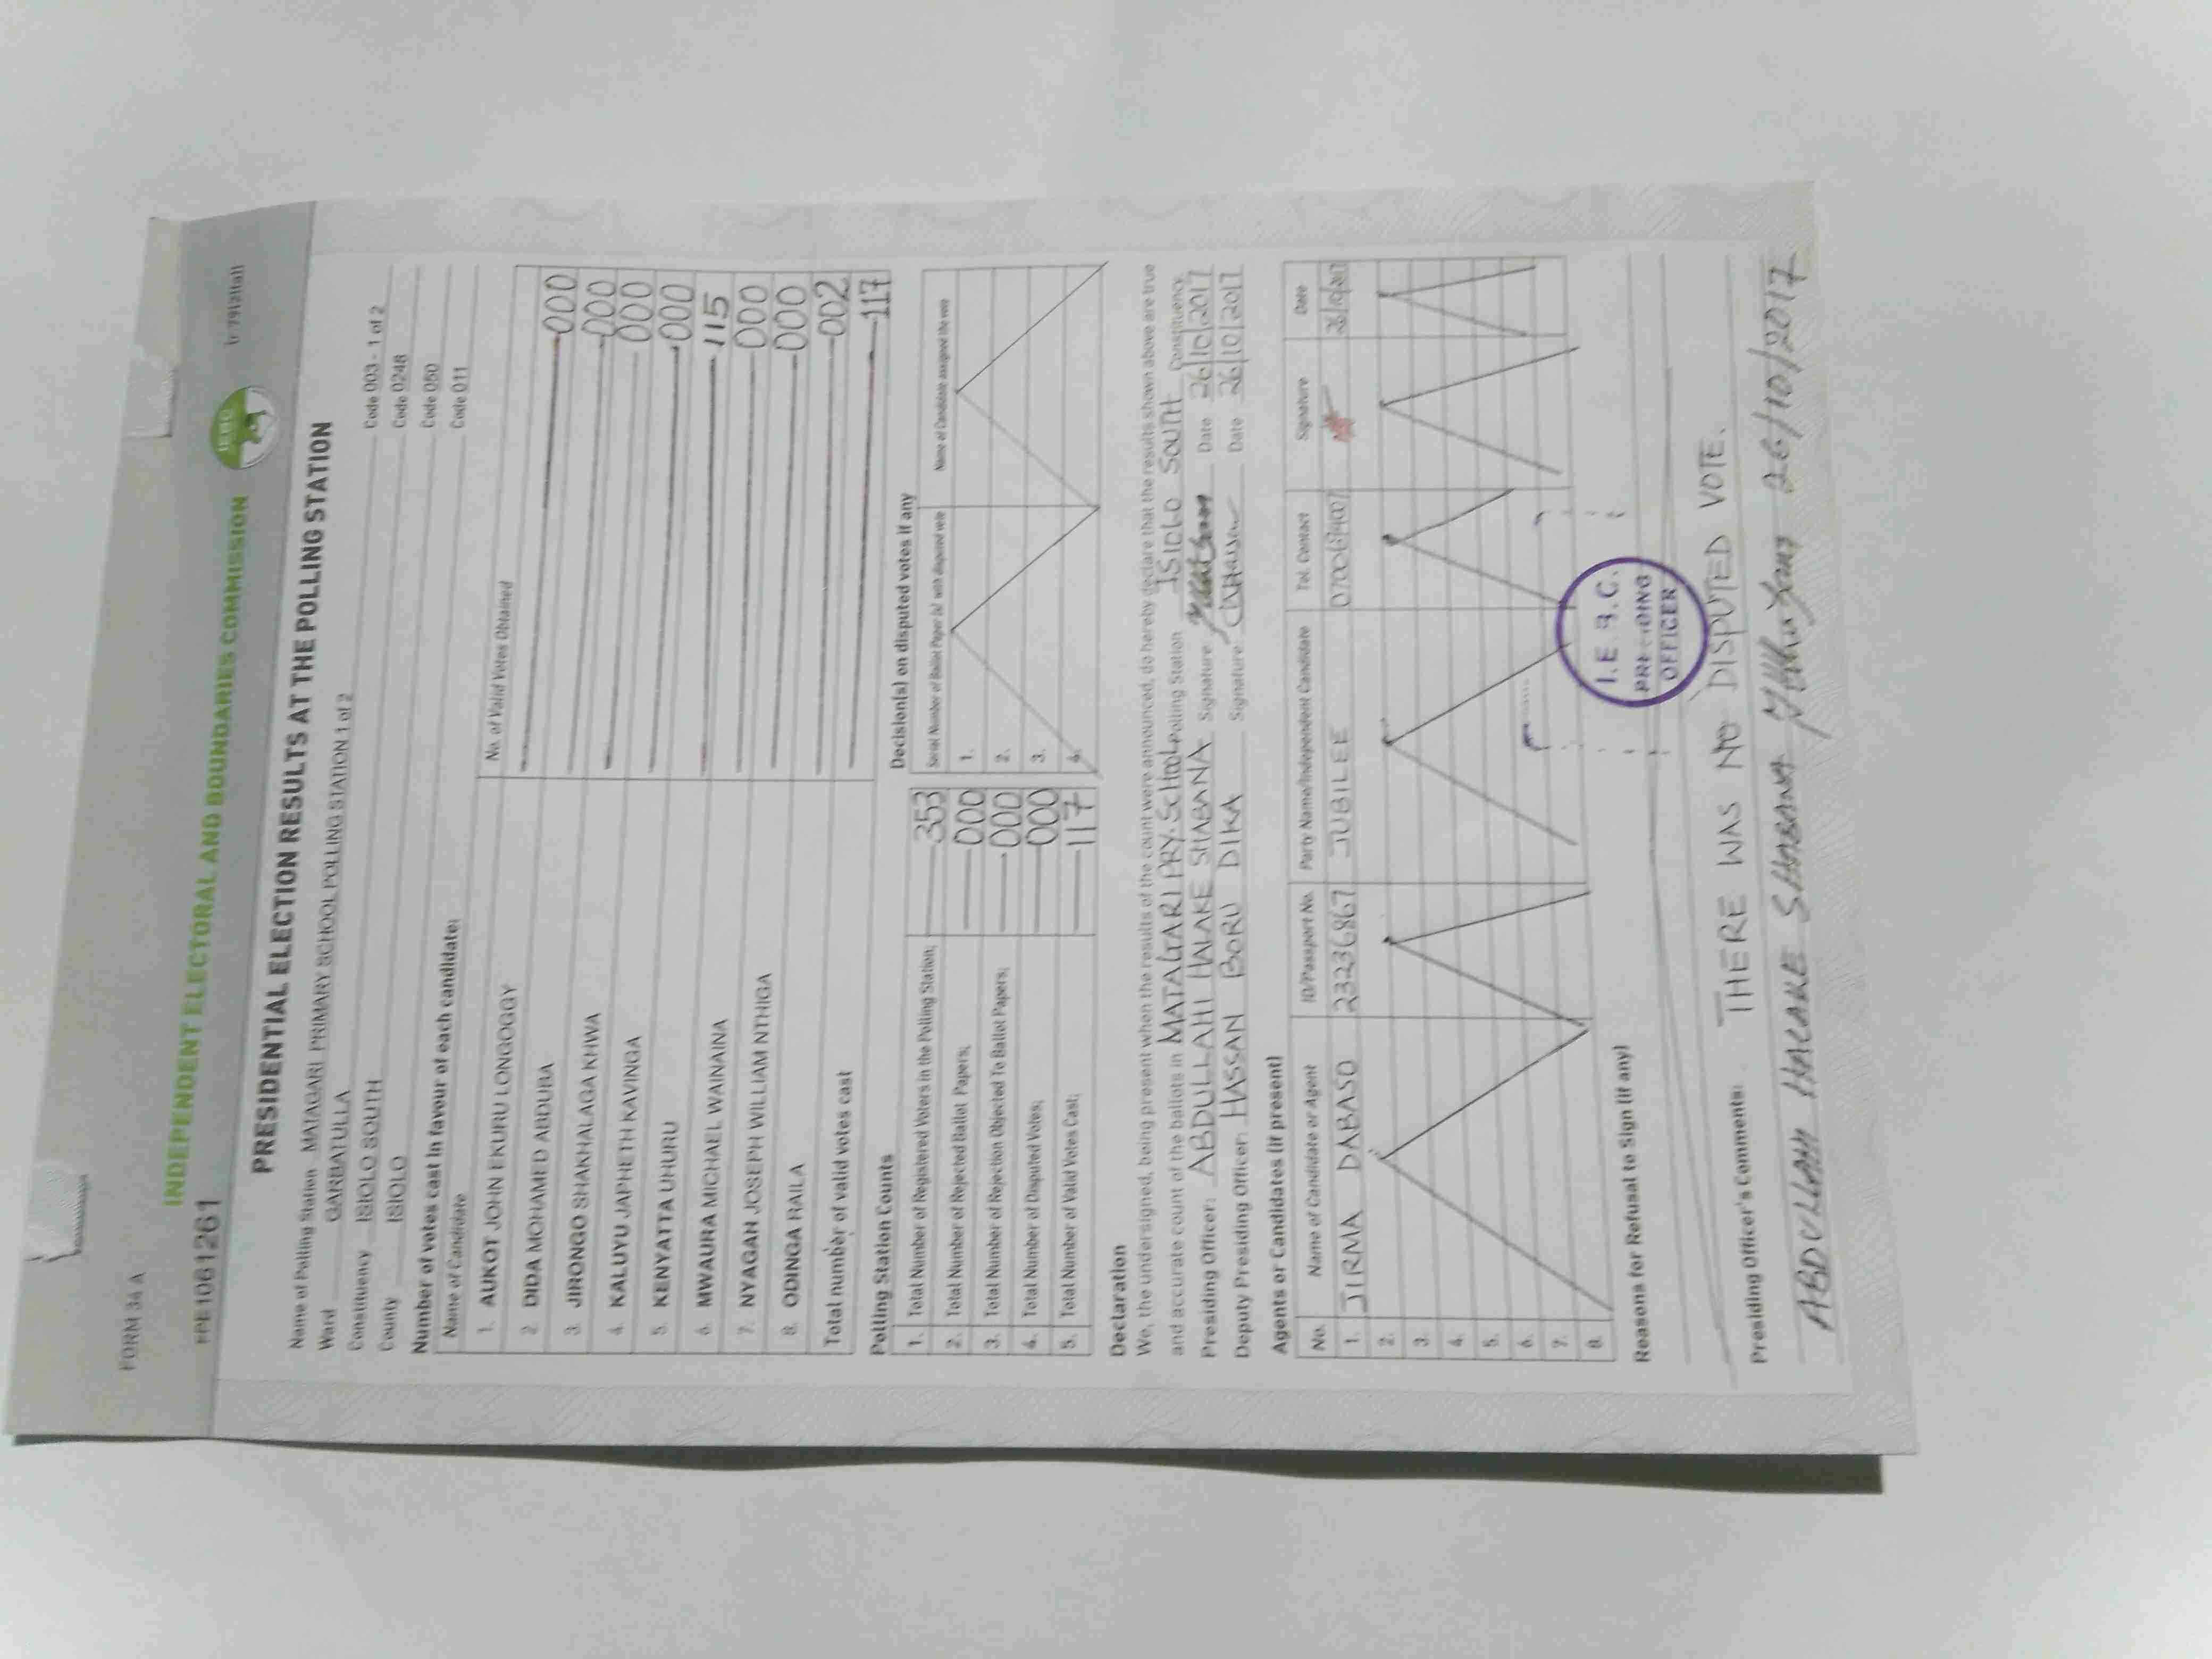 FORM 34 A
INDEPENDENT ELECTORAL AND BOUNDARIES COMMISSION
IEBC
PRESIDENTIAL ELECTION RESULTS AT THE POLLING STATION
Name of Polling Station MATAGARI PRIMARY SCHOOL POLLING STATION 1 of 2 Code 003 - 1 of 2
Ward GARBATULLA Code 0248
Constituency ISIOLO SOUTH Code 050
County ISIOLO Code 011
Number of votes cast in favour of each candidate:
Name of Candidate No. of Valid Votes Obtained
1. AUKOT JOHN EKURU LONGOGGY 000
2. DIDA MOHAMED ABDUBA 000
3. JIRONGO SHAKHALAGA KHWA 000
4. KALUYU JAPHETH KAVINGA 000
5. KENYATTA UHURU 115
6. MWAURA MICHAEL WAINAINA 000
7. NYAGAH JOSEPH WILLIAM NTHIGA 000
8. ODINGA RAILA 002
Total number of valid votes cast 117
Polling Station Counts
1. Total Number of Registered Voters in the Polling Station; 353
2. Total Number of Rejected Ballot Papers; 000
3. Total Number of Rejection Objected To Ballot Papers; 000
4. Total Number of Disputed Votes; 000
5. Total Number of Valid Votes Cast; 117
Decision(s) on disputed votes if any
Serial Number of Ballot Paper (s) with disputed vote Name of Candidate assigned the vote
1.
2.
3.
4.
Declaration
We, the undersigned, being present when the results of the count were announced, do hereby declare that the results shown above are true
and accurate count of the ballots in MATAGARI PRY. SCHOOL Polling Station ISIOLO SOUTH Constituency
Presiding Officer: ABDULLAHI HALAKE SHABANA Signature: Date 26/10/2017
Deputy Presiding Officer: HASSAN BORU DIKA Signature: Date 26/10/2017
Agents or Candidates (if present)
No. Name of Candidate or Agent ID/Passport No. Party Name/Independent Candidate Tel. Contact Signature Date
1. JIRMA DABASO 23236867 JUBILEE
2.
3.
4.
5.
6.
7.
8.
I.E.B.C.
PRESIDING
OFFICER
Reasons for Refusal to Sign (if any)
Presiding Officer's Comments: THERE WAS NO DISPUTED VOTE.
ABDULLAHI HALAKE SHABANA 26/10/2017